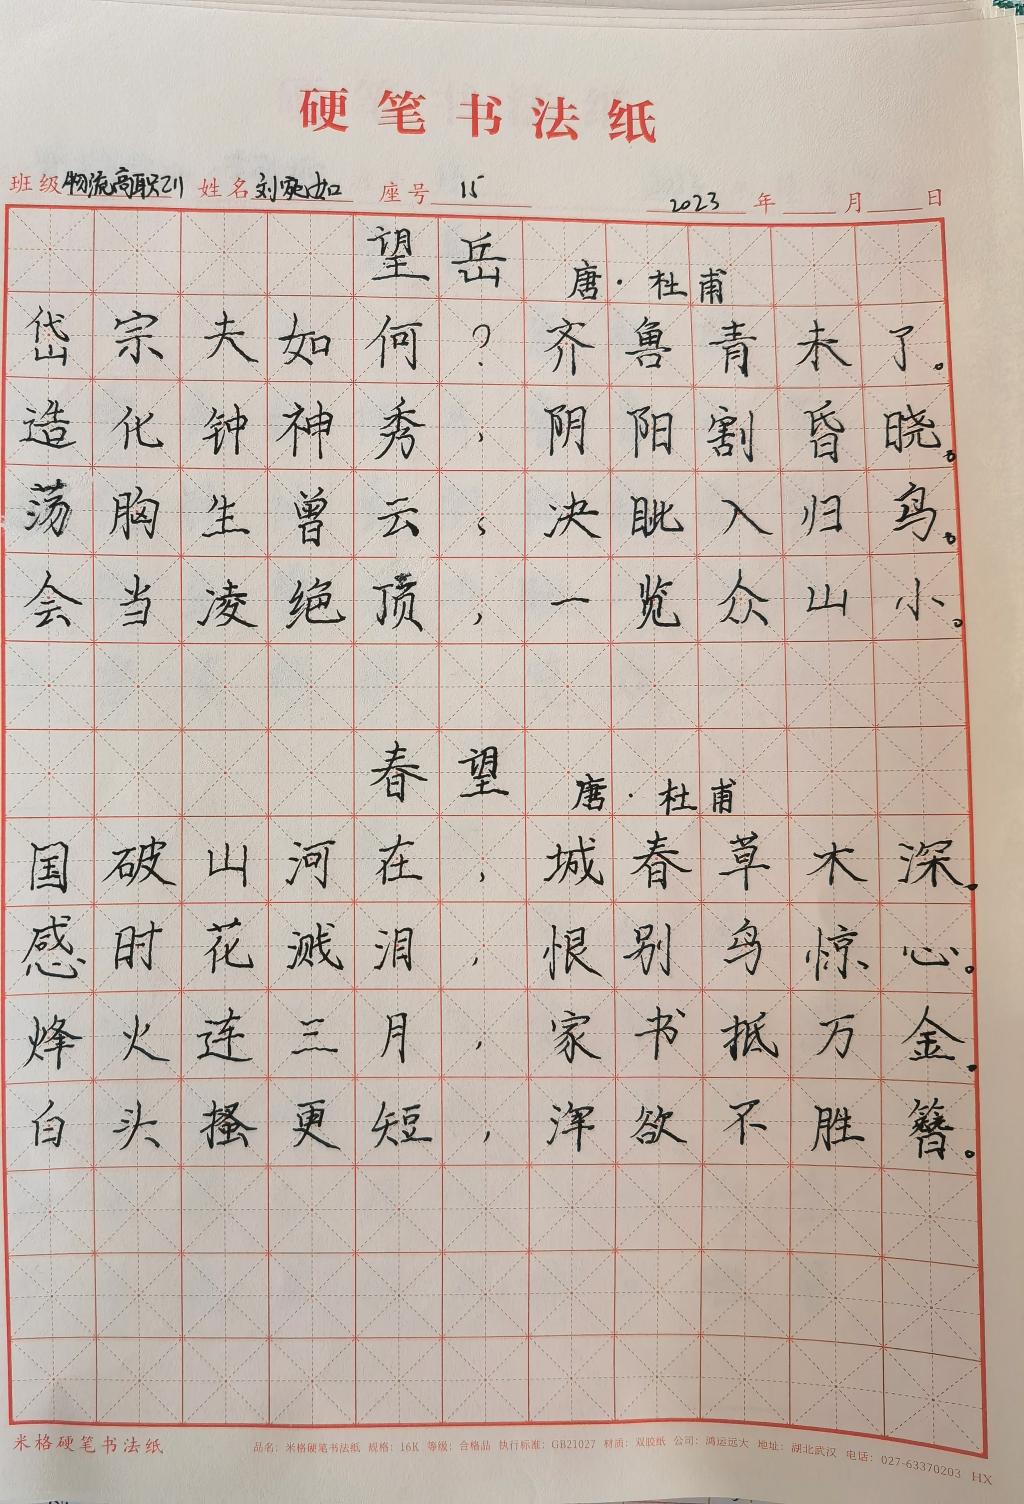 硬笔书法纸
班级 物流高职211 姓名 刘宛如 座号 15 2023 年 月 日
望岳 唐·杜甫
岱宗夫如何?齐鲁青未了。
造化钟神秀,阴阳割昏晓。
荡胸生曾云,决眦入归鸟。
会当凌绝顶,一览众山小。
春望 唐·杜甫
国破山河在,城春草木深。
感时花溅泪,恨别鸟惊心。
烽火连三月,家书抵万金。
白头搔更短,浑欲不胜簪。
米格硬笔书法纸 品名:米格硬笔书法纸 规格:16K 等级:合格品 执行标准:GB21027 材质:双胶纸 公司:鸿运远大 地址:湖北武汉 电话:027-63370203 HX